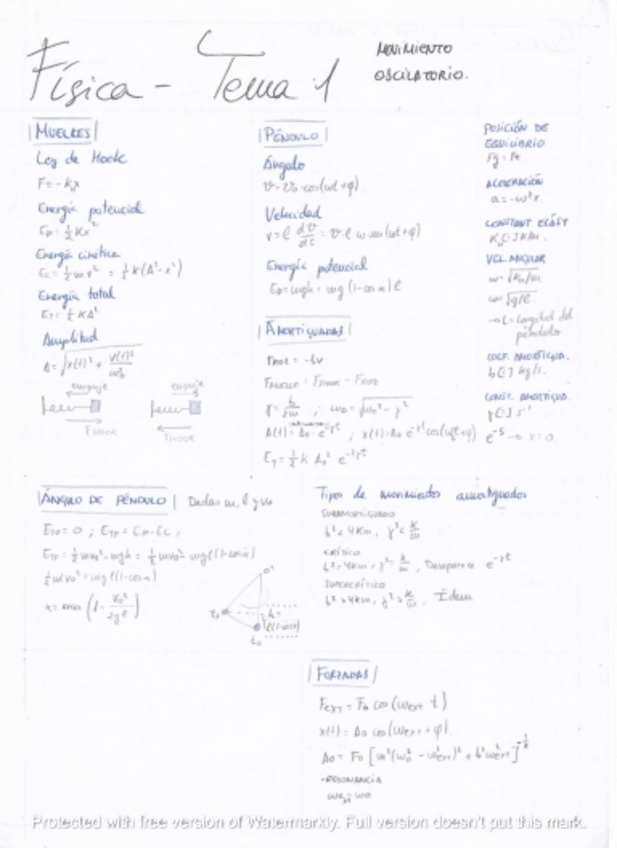 Física - Tema 1
MOVIMIENTO
OSCILATORIO.
MUELLES
Ley de Hook
F = -kx
Energía potencial
Ep = ½ Kx²
Energía cinética
Ec = ½ m v² = ½ K(A² - x²)
Energía total
ET = ½ KA²
Amplitud
A = √(x(t)² + v(t)²/ω0²)
empuje
empuje
FHOOK
FHOOK
PÉNDULO
Ángulo
Velocidad
Energía potencial
Ep = mgh = mg (1-cos α) l
AMORTIGUADAS
FROZ = -bv
γ = b/2m ; ω0 = √(ω0² - γ²)
ET = ½ k A0² e^-2γt
POSICIÓN DE
EQUILIBRIO
Fg = Fe
ACELERACIÓN
a = -ω²x
CONSTANT ELÁST
VEL. ANGULAR
ω = √(K/m)
ω = √(g/l)
→ L = longitud del
péndulo
COEF. AMORTIGUA.
b [=] kg/s.
CONST. AMORTIGUA.
γ [=] s⁻¹
ÁNGULO DE PÉNDULO | Dadas m, l y v0
½ m v0² = mg l(1-cos α)
Tipos de movimientos amortiguados
SUBAMORTIGUADO
b² < 4Km, γ² < K/m
CRÍTICO
b² = 4Km, γ² = K/m, Desaparece e^-γt
SUPERCRÍTICO
b² > 4Km, γ² > K/m, Ídem
FORZADAS
FEXT = F0 cos (ωext t)
x(t) = A0 cos (ωext + φ)
A0 = F0 [m²(ω0² - ωext²)² + b²ωext²]^-½
-RESONANCIA
ωext = ω0
Protected with free version of Watermarkly. Full version doesn't put this mark.